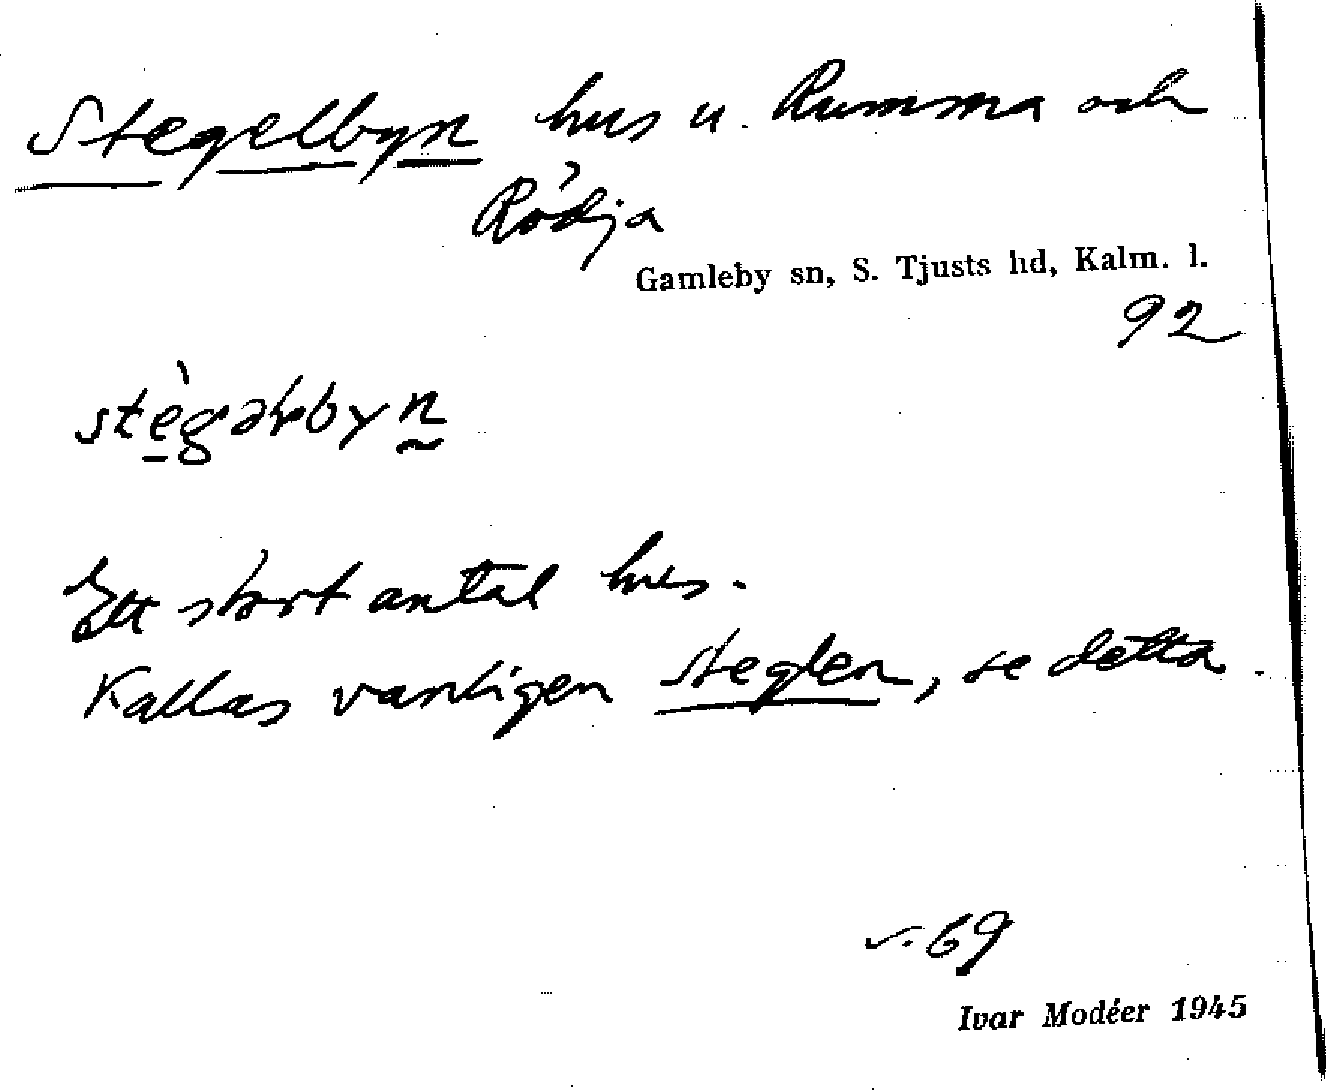 Stegelbyn hus u. Rumma och
Rödja
Gamleby sn, S. Tjusts hd, Kalm. l.
92
stègəḷbyn
Ett stort antal hus.
Kallas vanligen Steglen, se detta.
s. 69
Ivar Modéer 1945